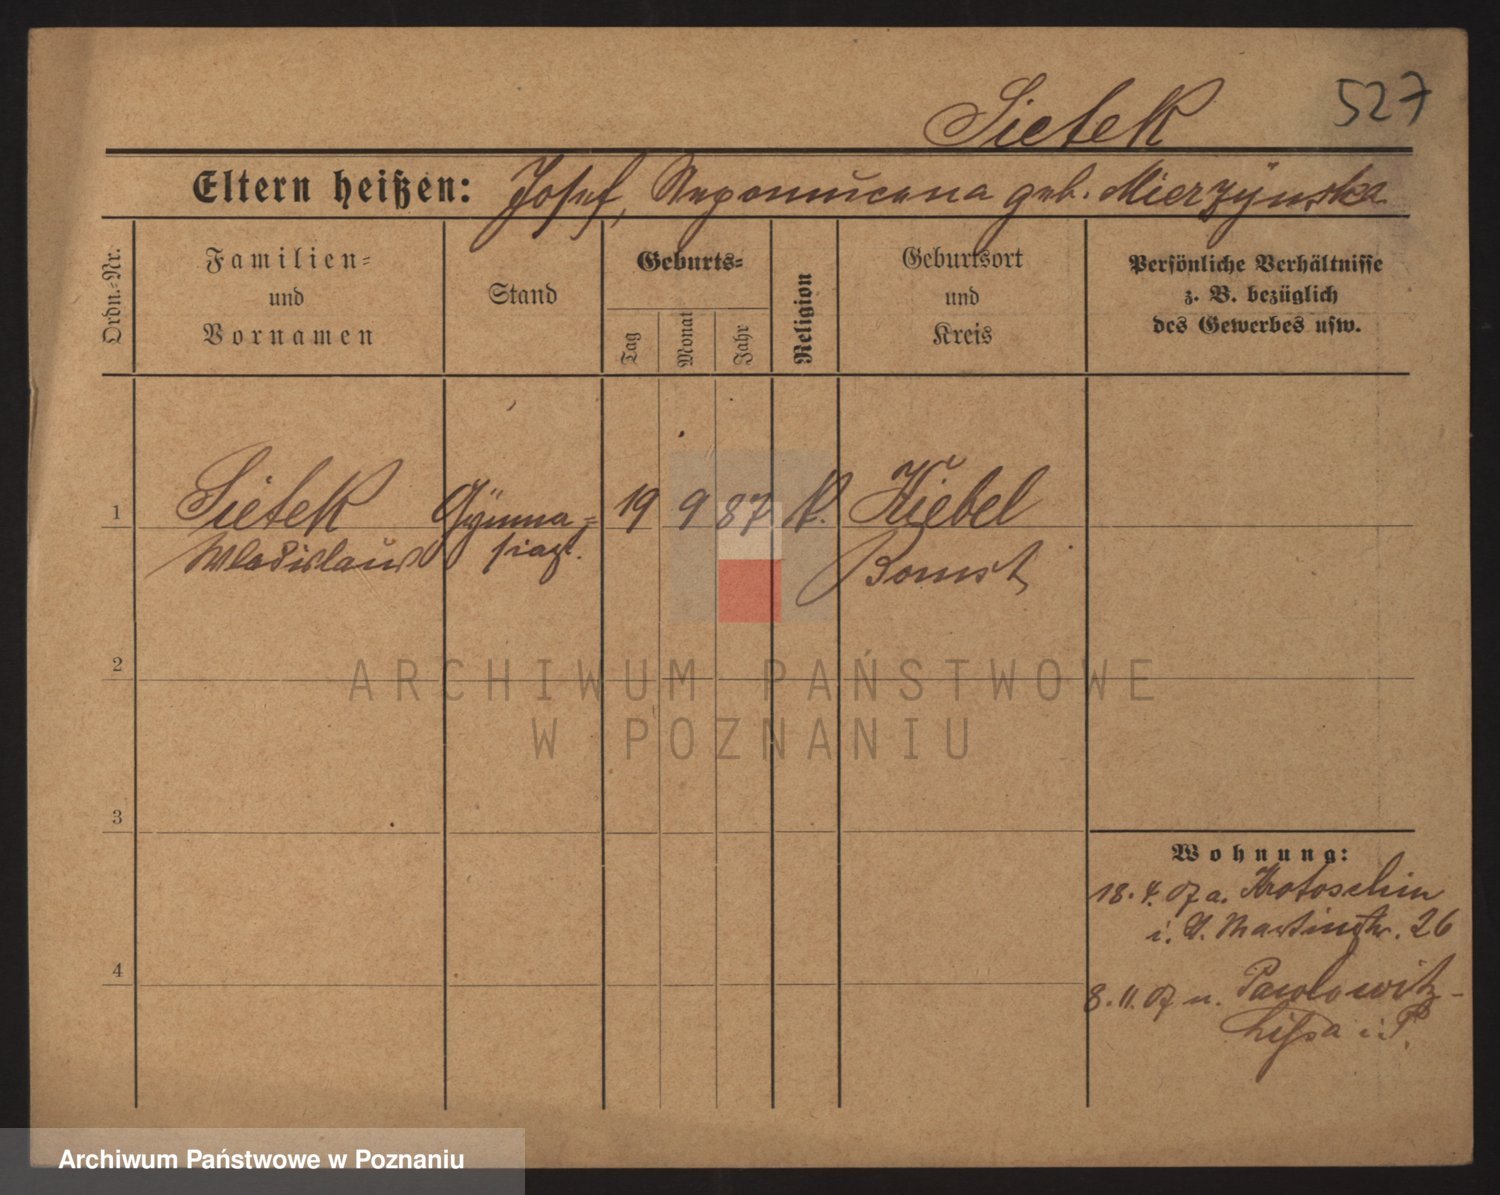 Sietek 527
Eltern heißen: Josef, Nepomucena geb. Mierzÿnska
Ordn.-Nr.
Familien-
und
Vornamen
Stand
Geburts-
Tag
Monat
Jahr
Religion
Geburtsort
und
Kreis
Persönliche Verhältnisse
z. B. bezüglich
des Gewerbes usw.
1 Sietek Gÿmna= 19 9 87 k. Kiebel
Wladislaus siast. Bomst
2
ARCHIWUM PAŃSTWOWE
W POZNANIU
3
Wohnung:
18.4.07 a. Krotoschin
i. Martinstr. 26
4
8.11.07 n. Pawlowitz-
Lissa i. P.
Archiwum Państwowe w Poznaniu